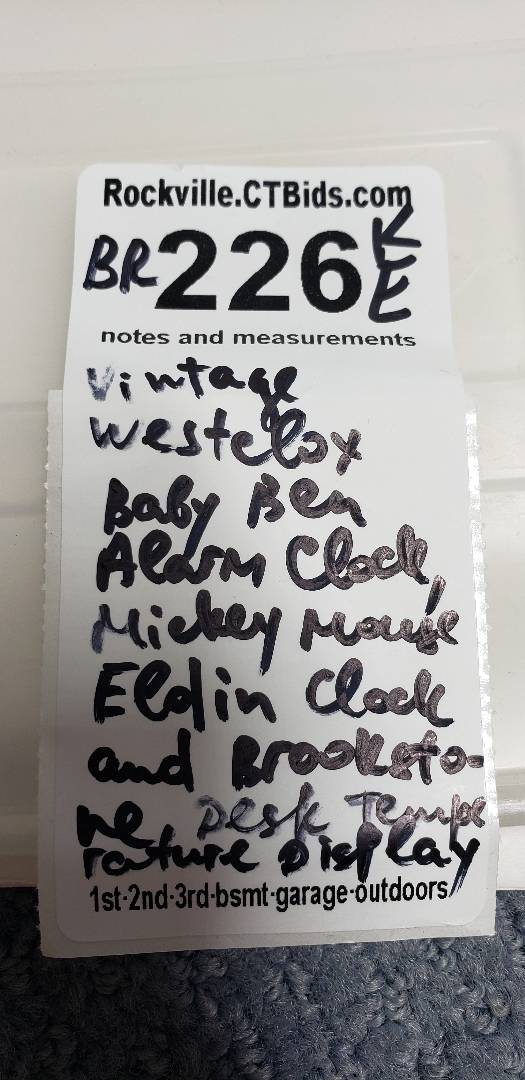 Rockville.CTBids.com
BR 226 KE
notes and measurements
Vintage
Westclox
Baby Ben
Alarm Clock,
Mickey Mouse
Eldin Clock
and Brooksto-
ne Desk Tempe
rature Display
1st-2nd-3rd-bsmt-garage-outdoors